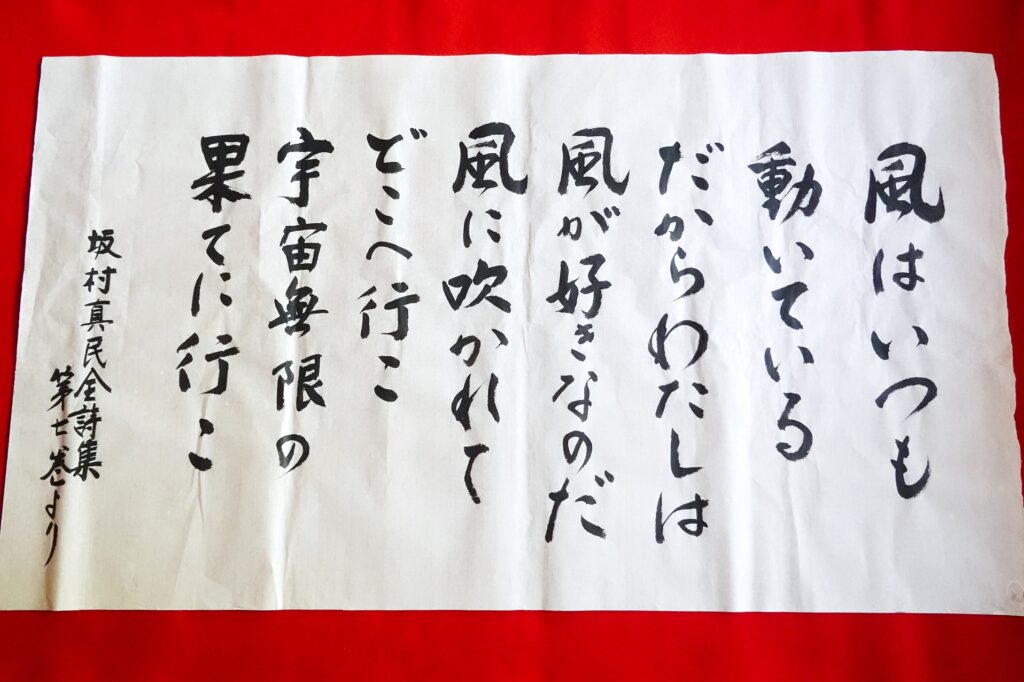 風はいつも
動いている
だからわたしは
風が好きなのだ
風に吹かれて
どこへ行こ
宇宙無限の
果てに行こ
坂村真民全詩集
第七巻より